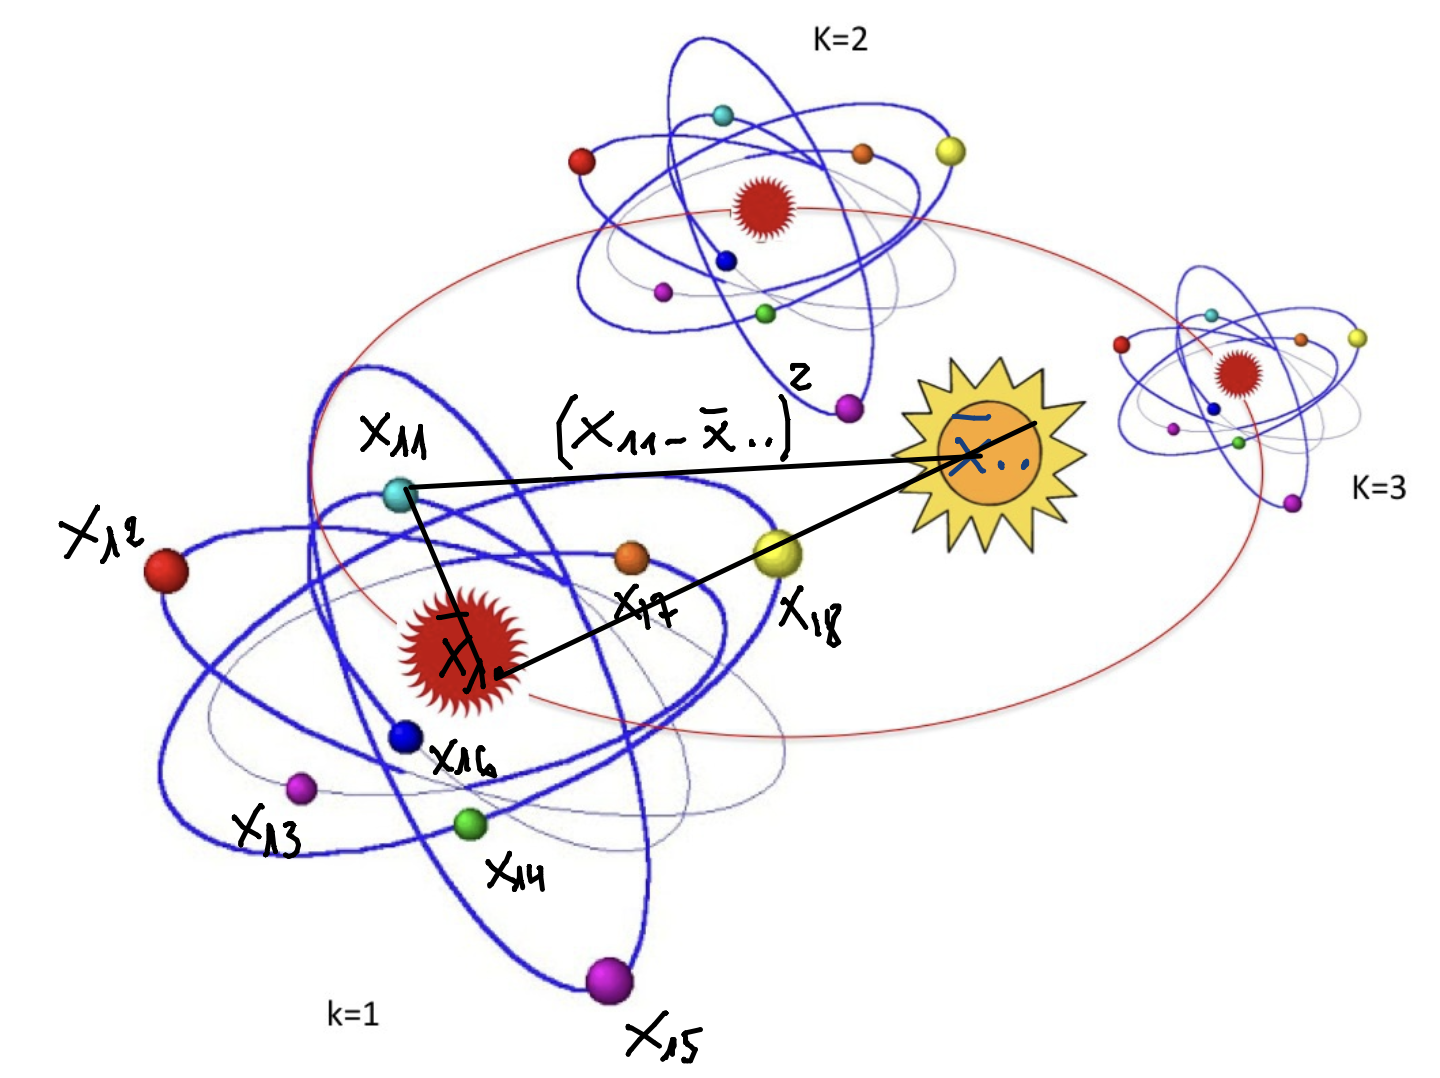 K=2
2
(X11 - x̄..)
X11
x̄..
K=3
X12
X17
X18
x̄1
X16
X13
X14
k=1
X15